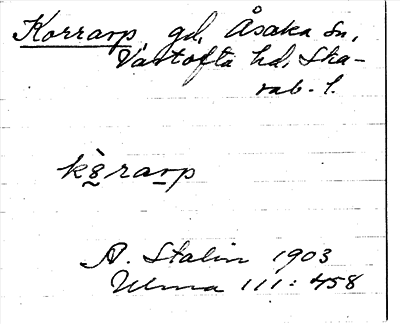 Korrarp gd, Åsaka sn,
Vartofta hd, Ska-
rab. l.
kȣ̀rarp
A. Stalin 1903
Ulma 111: 458